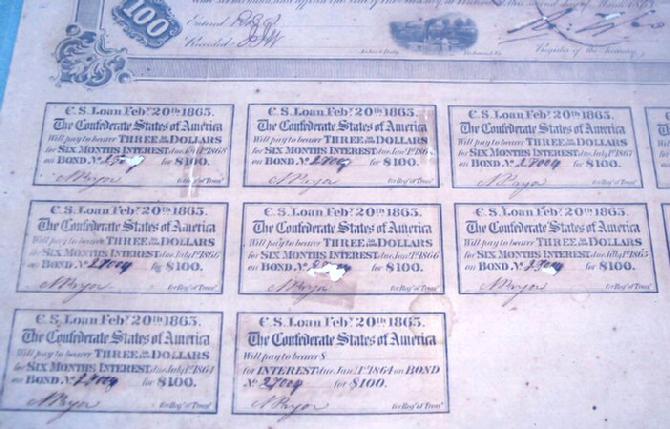 100
Entered
Recorded
Register of the Treasury
C. S. Loan Feby. 20th 1863.
The Confederate States of America
Will pay to bearer THREE DOLLARS
for SIX MONTHS INTEREST due July 1st 1868
on BOND. No for $100.
for Regr of Treasy
C. S. Loan Feby. 20th 1863.
The Confederate States of America
Will pay to bearer THREE DOLLARS
for SIX MONTHS INTEREST due Jany 1st
on BOND. No 27004 for $100.
for Regr of Treasy
C. S. Loan Feby. 20th 1863.
The Confederate States of America
Will pay to bearer THREE DOLLARS
for SIX MONTHS INTEREST due July 1st 1867
on BOND. No 27004 for $100.
for Regr of Treasy
C. S. Loan Feby. 20th 1863.
The Confederate States of America
Will pay to bearer THREE DOLLARS
for SIX MONTHS INTEREST due July 1st 1866
on BOND. No 27004 for $100.
for Regr of Treasy
C. S. Loan Feby. 20th 1863.
The Confederate States of America
Will pay to bearer THREE DOLLARS
for SIX MONTHS INTEREST due Jany 1st 1866
on BOND. No for $100.
for Regr of Treasy
C. S. Loan Feby. 20th 1863.
The Confederate States of America
Will pay to bearer THREE DOLLARS
for SIX MONTHS INTEREST due July 1st 1865
on BOND. No for $100.
for Regr of Treasy
C. S. Loan Feby. 20th 1863.
The Confederate States of America
Will pay to bearer THREE DOLLARS
for SIX MONTHS INTEREST due July 1st 1864
on BOND. No 27004 for $100.
for Regr of Treasy
C. S. Loan Feby. 20th 1863.
The Confederate States of America
Will pay to bearer $
for INTEREST due Jany 1st 1864 on BOND
No 27004 for $100.
for Regr of Treasy